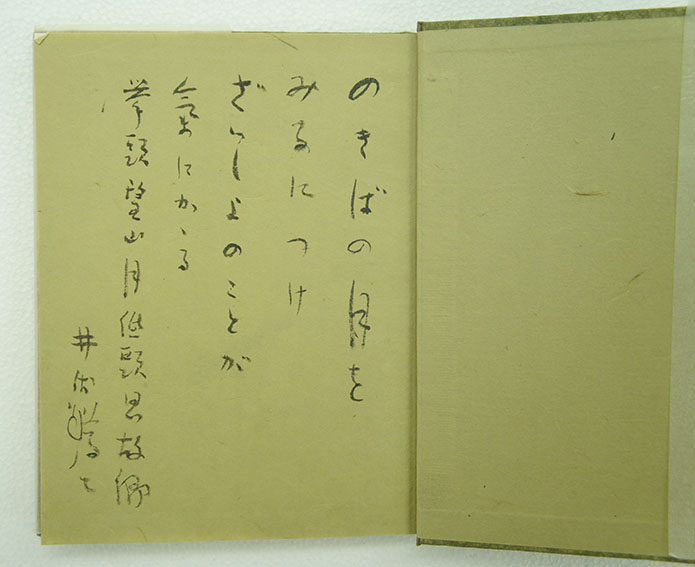 のきばの月を
みるにつけ
ざいしよのことが
氣にかゝる
挙頭望山月低頭思故郷
井伏鱒二